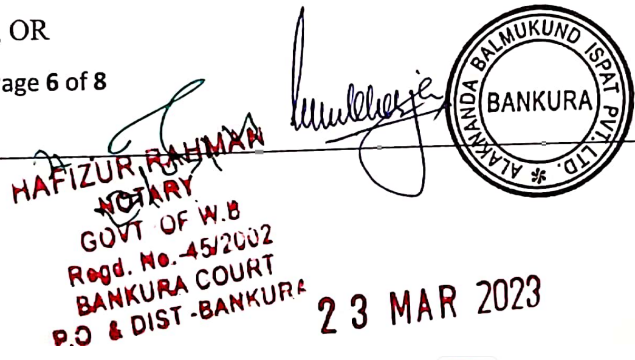 OR
age 6 of 8
ALAKNANDA BALMUKUND ISPAT PVT. LTD.
BANKURA
HAFIZUR RAHMAN
NOTARY
GOVT OF W.B
Regd. No.-45/2002
BANKURA COURT
P.O & DIST-BANKURA
23 MAR 2023